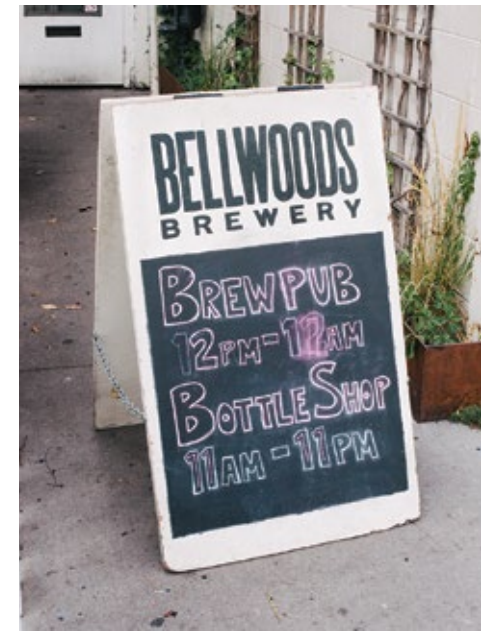 BELLWOODS
BREWERY
BREW PUB
12PM-12AM
BOTTLE SHOP
11AM-11PM